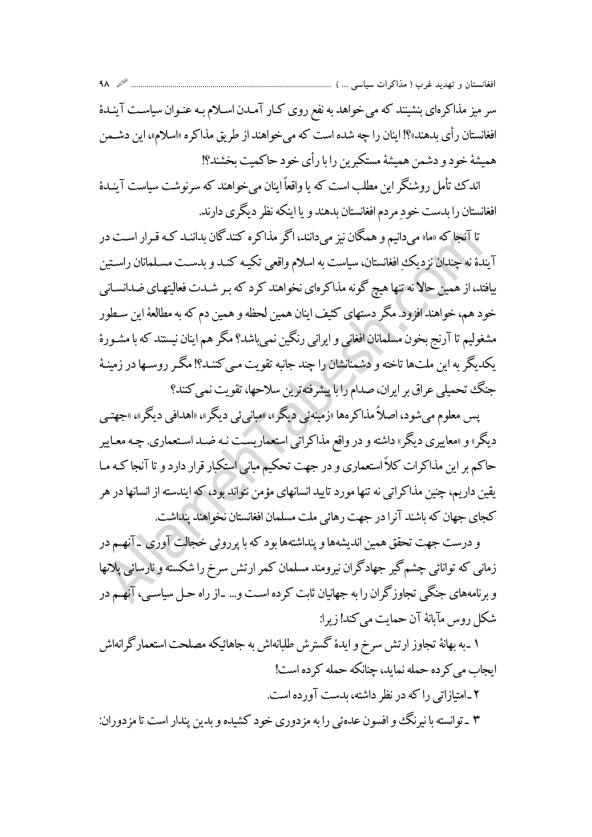 افغانستان و تهدید غرب ( مذاکرات سیاسی ... ) ........................................................................ ۹۸
سر میز مذاکره‌ای بنشیند که می‌خواهد به نفع روی کار آمدن اسلام به عنوان سیاست آیندهٔ
افغانستان رأی بدهند»؟! اینان را چه شده است که می‌خواهند از طریق مذاکره «اسلام»، این دشمن
همیشهٔ خود و دشمن همیشهٔ مستکبرین را با رأی خود حاکمیت بخشند؟!
اندک تأمل روشنگر این مطلب است که یا واقعاً اینان می‌خواهند که سرنوشت سیاست آیندهٔ
افغانستان را بدست خودِ مردم افغانستان بدهند و یا اینکه نظر دیگری دارند.
تا آنجا که «ما» می‌دانیم و همگان نیز می‌دانند، اگر مذاکره کنندگان بدانند که قرار است در
آیندهٔ نه چندان نزدیکِ افغانستان، سیاست به اسلام واقعی تکیه کند و بدست مسلمانان راستین
بیافتد، از همین حالا نه تنها هیچ گونه مذاکره‌ای نخواهند کرد که بر شدت فعالیتهای ضدانسانی
خود هم، خواهند افزود. مگر دستهای کثیف اینان همین لحظه و همین دم که به مطالعهٔ این سطور
مشغولیم تا آرنج بخون مسلمانان افغانی و ایرانی رنگین نمی‌باشد؟ مگر هم اینان نیستند که با مشورهٔ
یکدیگر به این ملت‌ها تاخته و دشمنانشان را چند جانبه تقویت می‌کنند؟! مگر روسها در زمینهٔ
جنگ تحمیلی عراق بر ایران، صدام را با پیشرفته‌ترین سلاحها، تقویت نمی‌کنند؟
پس معلوم می‌شود، اصلاً مذاکره‌ها «زمینه‌ئی دیگر»، «مبانی‌ئی دیگر»، «اهدافی دیگر»، «جهتی
دیگر» و «معاییری دیگر» داشته و در واقع مذاکراتی استعماریست نه ضد استعماری. چه معاییر
حاکم بر این مذاکرات کلاً استعماری و در جهت تحکیم مبانی استکبار قرار دارد و تا آنجا که ما
یقین داریم، چنین مذاکراتی نه تنها مورد تایید انسانهای مؤمن نتواند بود، که ایندسته از انسانها در هر
کجای جهان که باشند آنرا در جهت رهائی ملت مسلمان افغانستان نخواهند پنداشت.
و درست جهت تحقق همین اندیشه‌ها و پنداشته‌ها بود که با پرروئی خجالت آوری ـ آنهم در
زمانی که توانائی چشم‌گیر جهادگران نیرومند مسلمان کمر ارتش سرخ را شکسته و نارسائی پلانها
و برنامه‌های جنگی تجاوزگران را به جهانیان ثابت کرده است و... ـ از راه حل سیاسی، آنهم در
شکل روس مآبانهٔ آن حمایت می‌کند! زیرا:
۱ ـ به بهانهٔ تجاوز ارتش سرخ و ایدهٔ گسترش طلبانه‌اش به جاهائیکه مصلحت استعمارگرانه‌اش
ایجاب می‌کرده حمله نماید، چنانکه حمله کرده است!
۲ ـ امتیازاتی را که در نظر داشته، بدست آورده است.
۳ ـ توانسته با نیرنگ و افسون عده‌ئی را به مزدوری خود کشیده و بدین پندار است تا مزدوران:
AllamehTabesh.com